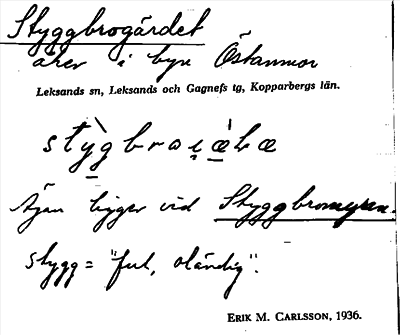 Styggbrogärdet
åker i byn Östanmor
Leksands sn, Leksands och Gagnefs tg, Kopparbergs län.
Ägan ligger vid Styggbromyran.
stygg = "ful, oländig".
ERIK M. CARLSSON, 1936.